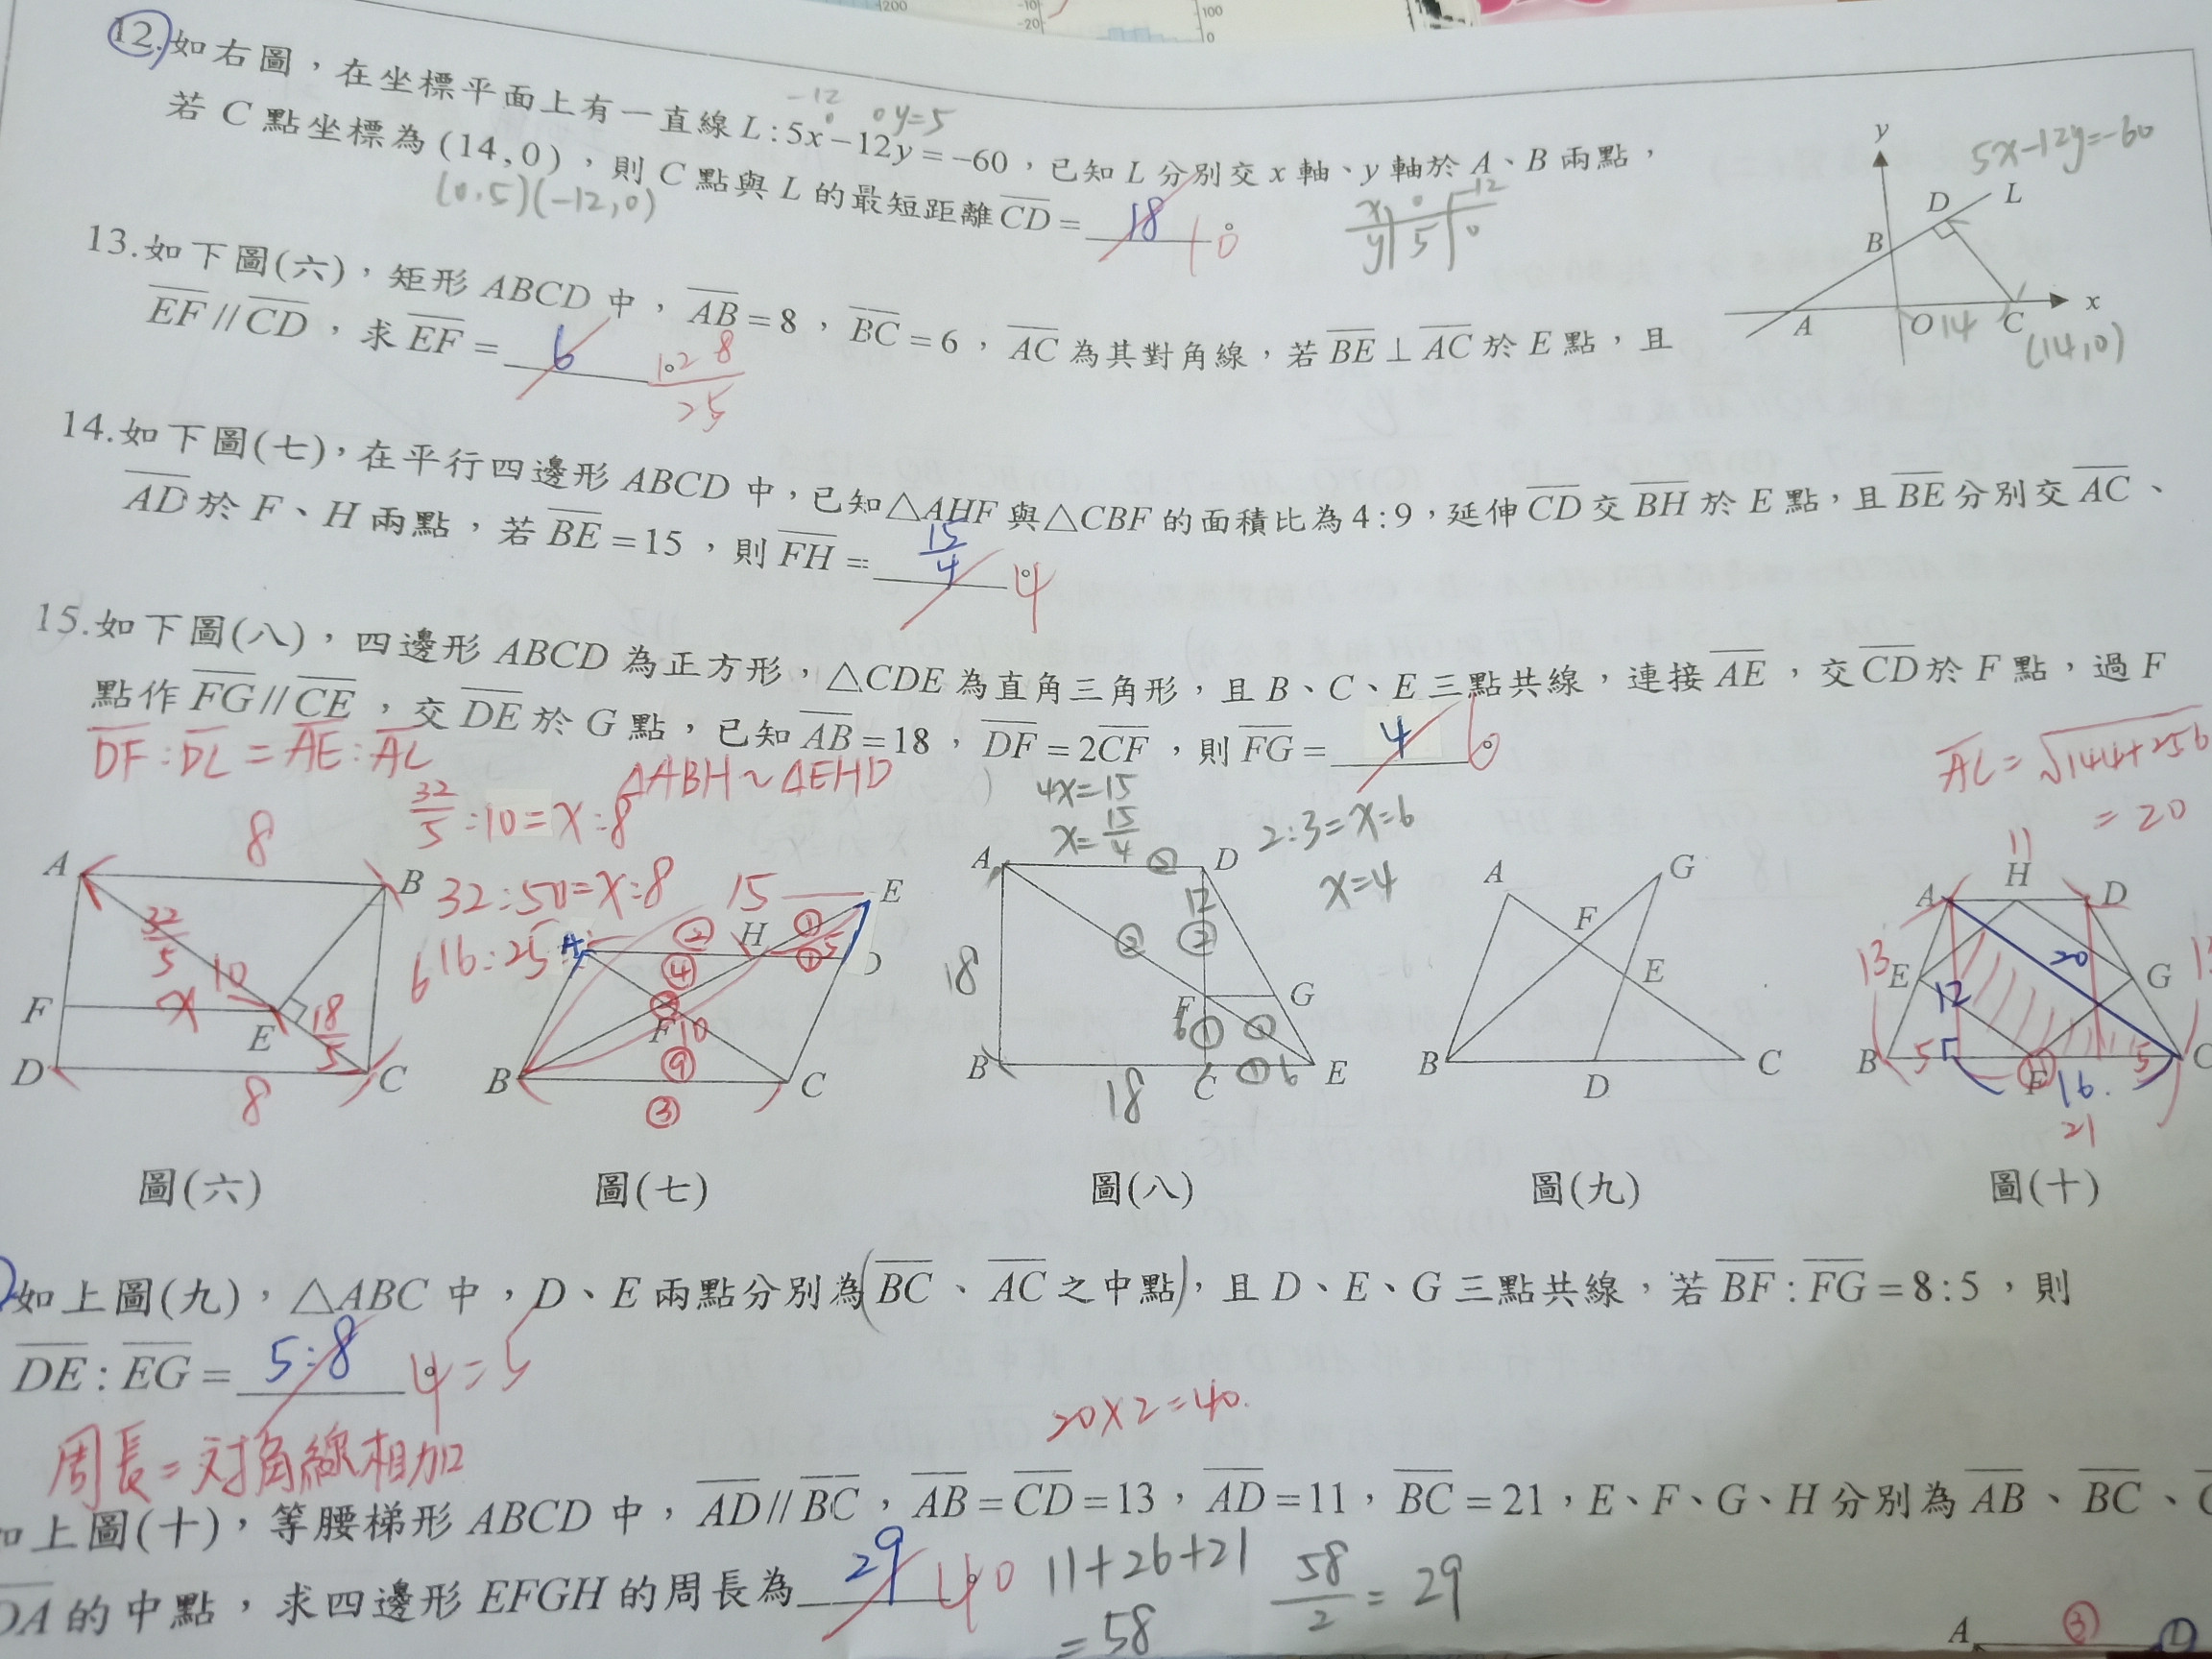 200
-10
-20
100
0
12.如右圖，在坐標平面上有一直線 L:5x-12y=-60，已知 L 分別交 x 軸、y 軸於 A、B 兩點，
-12 0 y=5
0
若 C 點坐標為(14,0)，則 C 點與 L 的最短距離 CD=18。10
(0,5)(-12,0)
x 0 -12
y 5 0
5x-12y=-60
y
D L
B
A O 14 C x
(14,0)
13.如下圖(六)，矩形 ABCD 中，AB=8，BC=6，AC 為其對角線，若 BE⊥AC 於 E 點，且
EF//CD，求 EF=6。128
25
14.如下圖(七)，在平行四邊形 ABCD 中，已知△AHF 與△CBF 的面積比為4:9，延伸 CD 交 BH 於 E 點，且 BE 分別交 AC、
AD 於 F、H 兩點，若 BE=15，則 FH=15/4。4
15.如下圖(八)，四邊形 ABCD 為正方形，△CDE 為直角三角形，且 B、C、E 三點共線，連接 AE，交 CD 於 F 點，過 F
點作 FG//CE，交 DE 於 G 點，已知 AB=18，DF=2CF，則 FG=4。6
DF:DC=AE:AC
△ABH~△EHD
32/5:10=x:8
32:50=x:8
16:25
4x=15
x=15/4
2:3=x:6
x=4
AC=√144+256
=20
8
A B
32/5
10
6
F x E 18/5
D C
8
圖(六)
15 E
A ② H ① D
④ ① 5
F 10
⑨
B C
③
圖(七)
A ② D
12
18 ② ②
F G
6 ① ②
B C ① 6 E
18
圖(八)
A G
F
E
B D C
圖(九)
11
A H D
13 20 13
E 12 G
B 5 F 16 5 C
21
圖(十)
如上圖(九)，△ABC 中，D、E 兩點分別為(BC、AC 之中點)，且 D、E、G 三點共線，若 BF:FG=8:5，則
DE:EG=5:8。4=5
周長=対角線相加
20×2=40.
如上圖(十)，等腰梯形 ABCD 中，AD//BC，AB=CD=13，AD=11，BC=21，E、F、G、H 分別為 AB、BC、
DA 的中點，求四邊形 EFGH 的周長為29。40
11+26+21
=58
58/2=29
A ③ ①